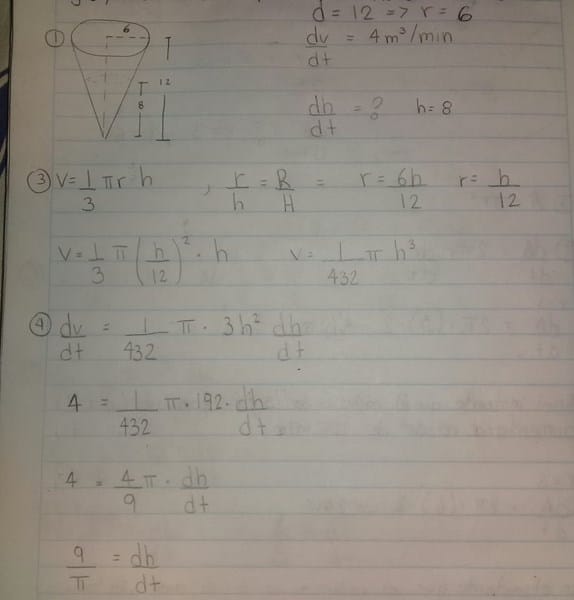 d = 12 => r = 6
① 6
dv/dt = 4m³/min
12
8
dh/dt = ? h = 8
③ V = 1/3 πr h , r/h = R/H = r = 6h/12 r = h/12
V = 1/3 π (h/12)² · h V = 1/432 π h³
④ dv/dt = 1/432 π · 3h² dh/dt
4 = 1/432 π · 192 · dh/dt
4 = 4/9 π · dh/dt
9/π = dh/dt